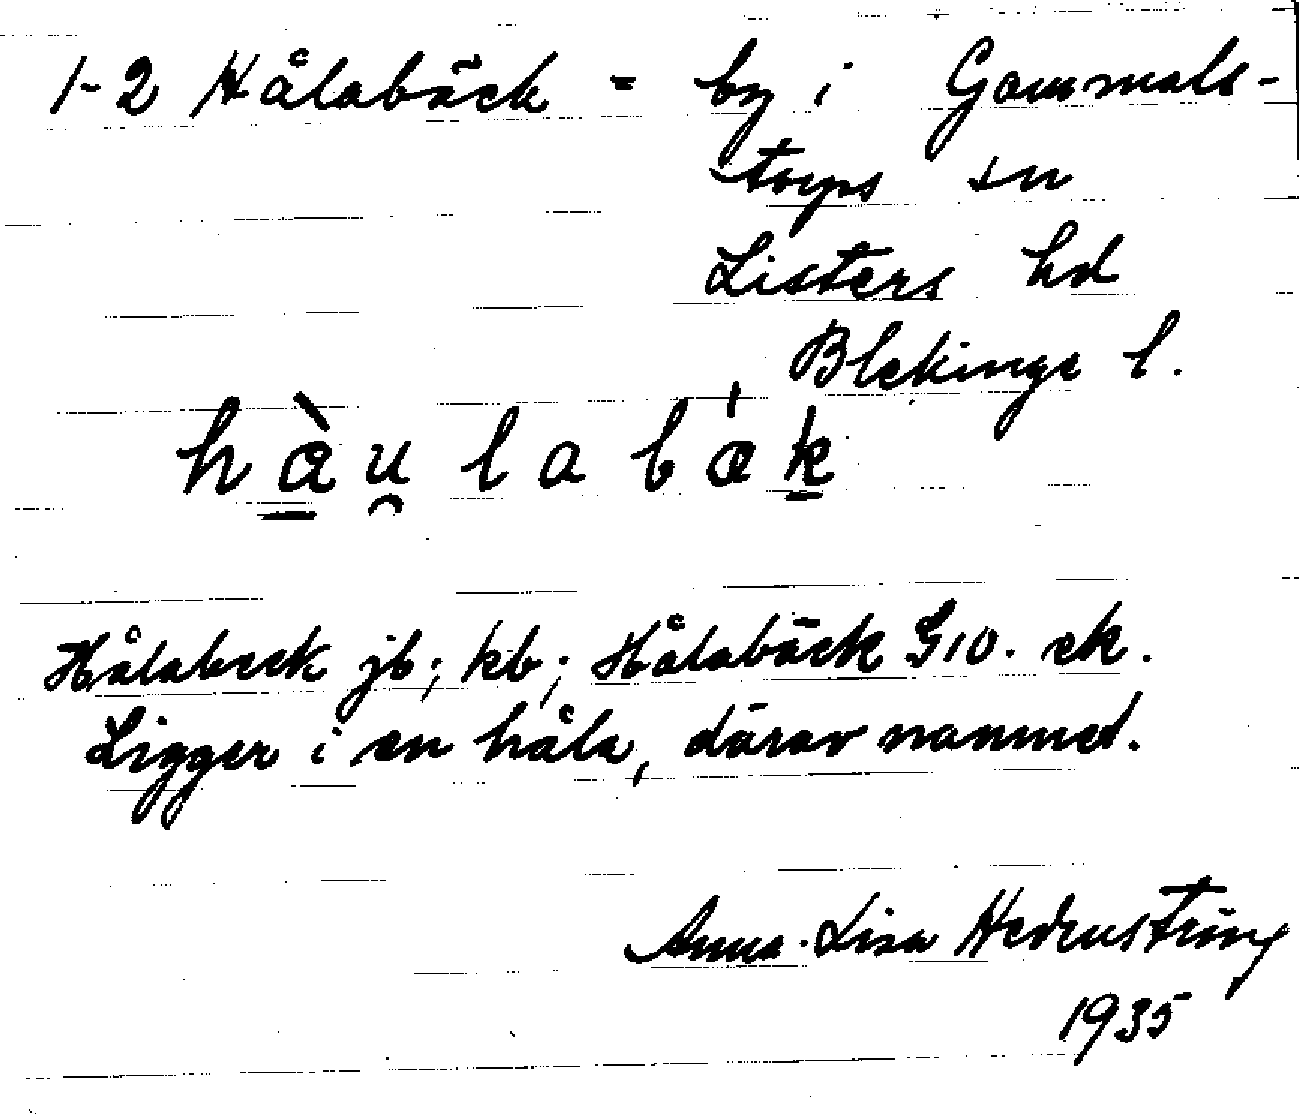 1-2 Hålabäck = by i Gammals-
torps sn
Listers hd
Blekinge l.
hàu̯labæ̍k
Hålabeck jb; kb; Hålabäck G10. ek.
Ligger i en håla, därav namnet.
Anna-Lisa Hedenström
1935